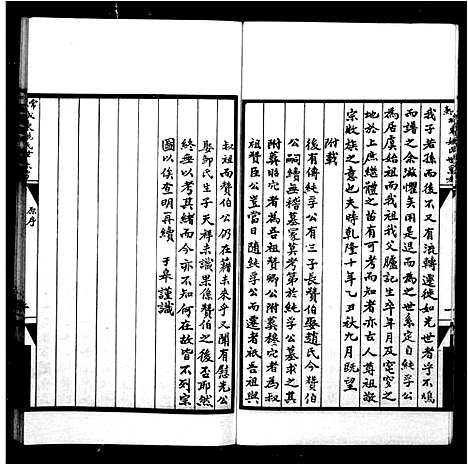 我子若孫而後不又有流轉遷徙如光世者乎不鳩
而譜之余滋懼矣用是退而為之世系定自純孚公
為居虞始祖而我祖我父臚記生卒年月及窀穸之
地於上庶繼體之苗有可稽而知者亦古人尊祖敬
宗收族之意也夫時乾隆十年乙丑秋九月既望
附載
後有傳純孚公有三子長贊伯娶趙氏今贊伯
公嗣續無稽墓冢莫考第於純孚公墓求之其
附葬昭穴者為吾祖贊卿公附葬穆穴者為叔
祖贊臣公豈當日隨純孚公而遷者祇吾祖與
叔祖而贊伯公仍在籍未來乎又聞有慰先公
娶鄒氏生子天祥未識果係贊伯之後否耶然
終無以考其緒而今亦不知何在故皆不列宗
圖以俟查明再續 于皋謹識
原序